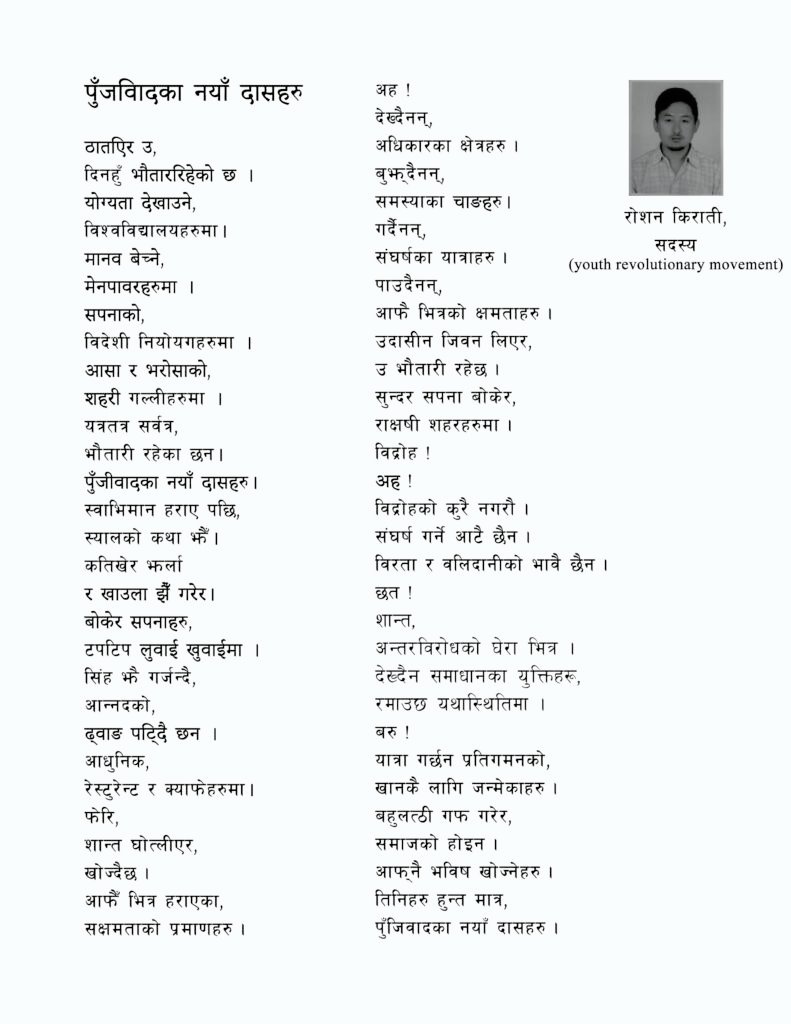 पुँजविादका नयाँ दासहरु
ठातएिर उ,
दिनहुँ भौतारिहेको छ ।
योग्यता देखाउने,
विश्वविद्यालयहरुमा।
मानव बेच्ने,
मेनपावरहरुमा ।
सपनाको,
विदेशी नियोयगहरुमा ।
आसा र भरोसाको,
शहरी गल्लीहरुमा ।
यत्रतत्र सर्वत्र,
भौतारी रहेका छन।
पुँजीवादका नयाँ दासहरु।
स्वाभिमान हराए पछि,
स्यालको कथा झैँ।
कतिखेर झर्ला
र खाउला झैँ गरेर।
बोकेर सपनाहरु,
टपटिप लुवाई खुवाईमा ।
सिंह झै गर्जन्दै,
आन्नदको,
ढ्वाङ पट्दिै छन ।
आधुनिक,
रेस्टुरेन्ट र क्याफेहरुमा।
फेरि,
शान्त घोत्लीएर,
खोज्दैछ ।
आफैँ भित्र हराएका,
सक्षमताको प्रमाणहरु ।
अह !
देख्दैनन्,
अधिकारका क्षेत्रहरु ।
बुझ्दैनन्,
समस्याका चाङहरु।
गर्दैनन्,
संघर्षका यात्राहरु ।
पाउदैनन्,
आफै भित्रको क्षमताहरु ।
उदासीन जिवन लिएर,
उ भौतारी रहेछ ।
सुन्दर सपना बोकेर,
राक्षषी शहरहरुमा ।
विद्रोह !
अह !
विद्रोहको कुरै नगरौ ।
संघर्ष गर्ने आटै छैन ।
विरता र वलिदानीको भावै छैन ।
छत !
शान्त,
अन्तरविरोधको घेरा भित्र ।
देख्दैन समाधानका युक्तिहरू,
रमाउछ यथास्थितिमा ।
बरु !
यात्रा गर्छन प्रतिगमनको,
खानकै लागि जन्मेकाहरु ।
बहुलत्ठी गफ गरेर,
समाजको होइन ।
आफ्नै भविष खोज्नेहरु ।
तिनिहरु हुन्त मात्र,
पुँजिवादका नयाँ दासहरु ।
रोशन किराती,
सदस्य
(youth revolutionary movement)